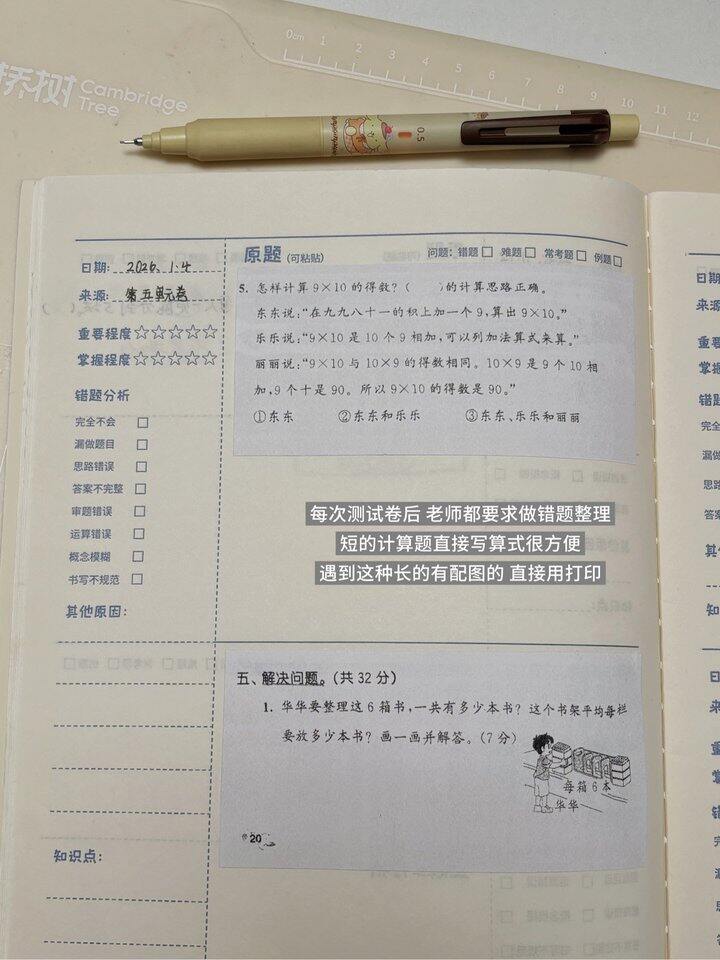 乔树 Cambridge Tree
0cm 1 2 3 4 5 6 7 8 9 10 11 12
0.5
日期: 2026.1.4
来源: 第五单元卷
重要程度☆☆☆☆☆
掌握程度☆☆☆☆☆
错题分析
完全不会 □
漏做题目 □
思路错误 □
答案不完整 □
审题错误 □
运算错误 □
概念模糊 □
书写不规范 □
其他原因:
知识点:
原题 (可粘贴) 问题: 错题□ 难题□ 常考题□ 例题□
5. 怎样计算9×10的得数?( )的计算思路正确。
东东说:“在九九八十一的积上加一个9,算出9×10。”
乐乐说:“9×10是10个9相加,可以列加法算式来算。”
丽丽说:“9×10与10×9的得数相同。10×9是9个10相
加,9个十是90。所以9×10的得数是90。”
①东东 ②东东和乐乐 ③东东、乐乐和丽丽
每次测试卷后 老师都要求做错题整理
短的计算题直接写算式很方便
遇到这种长的有配图的 直接用打印
五、解决问题。(共32分)
1. 华华要整理这6箱书,一共有多少本书?这个书架平均每栏
要放多少本书?画一画并解答。(7分)
每箱6本
华华
20